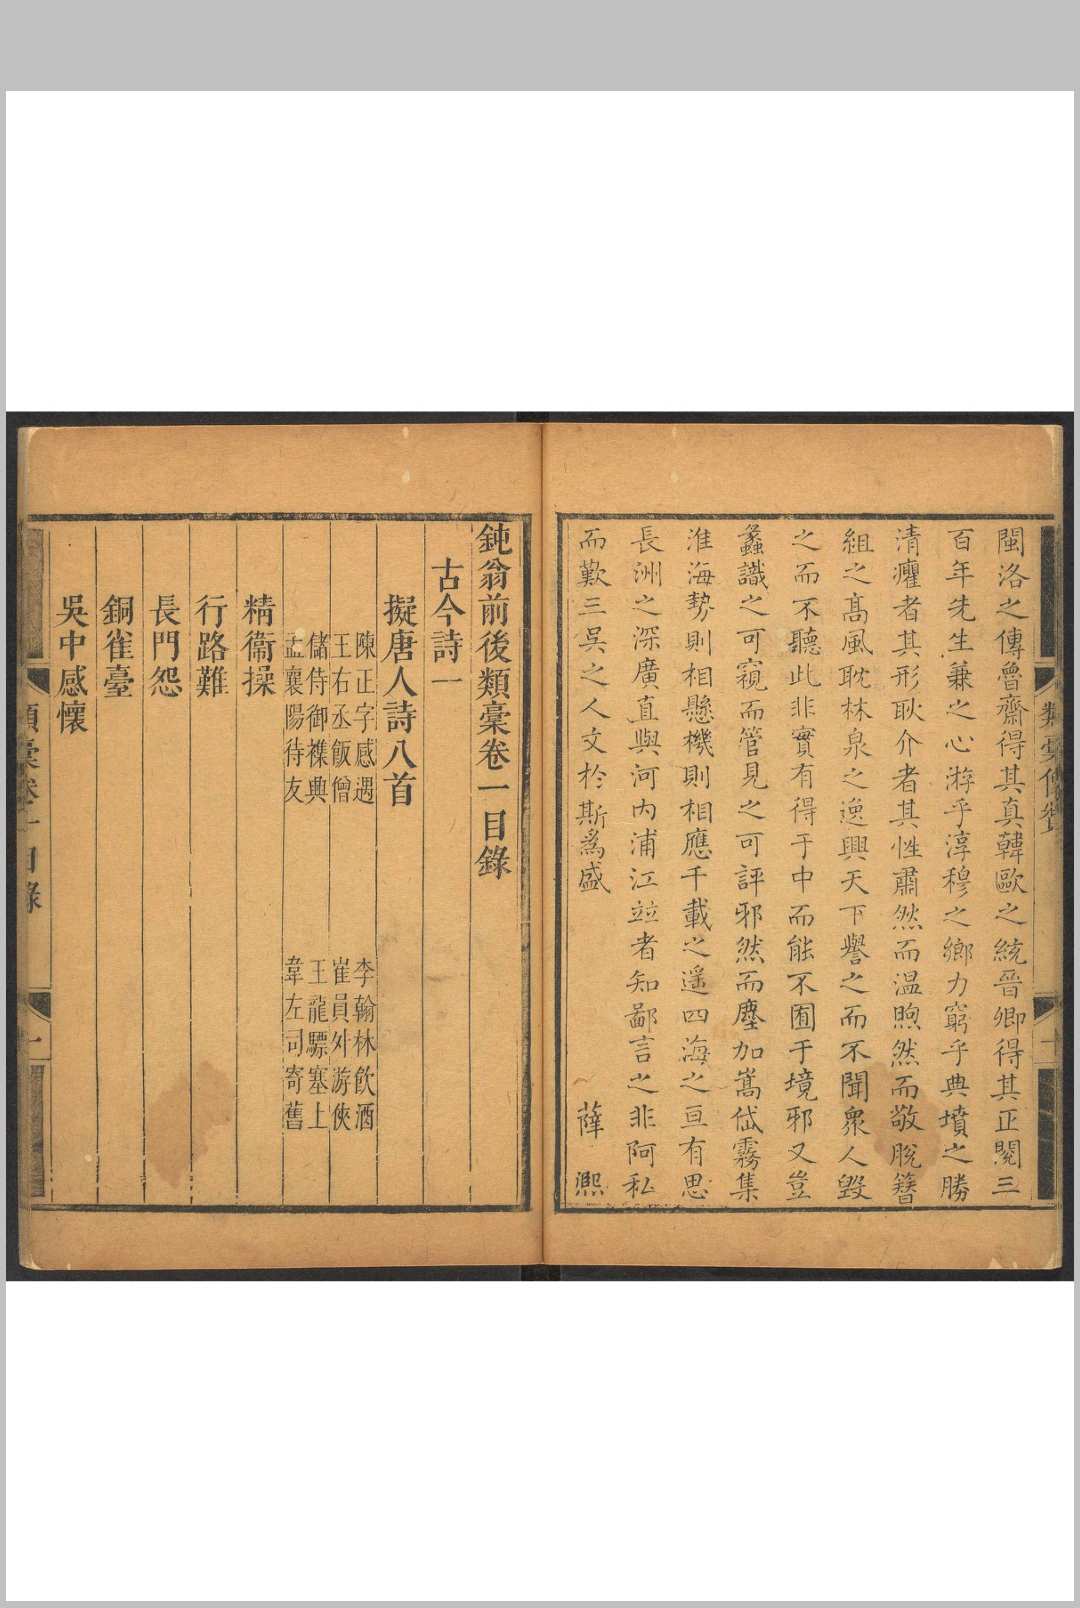 閩洛之傳魯齋得其真韓歐之統晉卿得其正閱三
百年先生兼之心游乎淳穆之鄉力窮乎典墳之勝
清癯者其形耿介者其性肅然而温煦然而敬脫簪
組之高風耽林泉之逸興天下譽之而不聞衆人毀
之而不聽此非實有得于中而能不囿于境邪又豈
蠡識之可窺而管見之可評邪然而塵加嵩岱霧集
淮海勢則相懸機則相應千載之遥四海之亘有思
長洲之深廣直與河内浦江竝者知鄙言之非阿私
而歎三吳之人文於斯爲盛
薛熙
鈍翁前後類稾卷一目錄
古今詩一
擬唐人詩八首
陳正字感遇 李翰林飲酒
王右丞飯僧 崔員外游俠
儲侍御樵典 王龍驃塞上
孟襄陽待友 韋左司寄舊
精衞操
行路難
長門怨
銅雀臺
吳中感懷